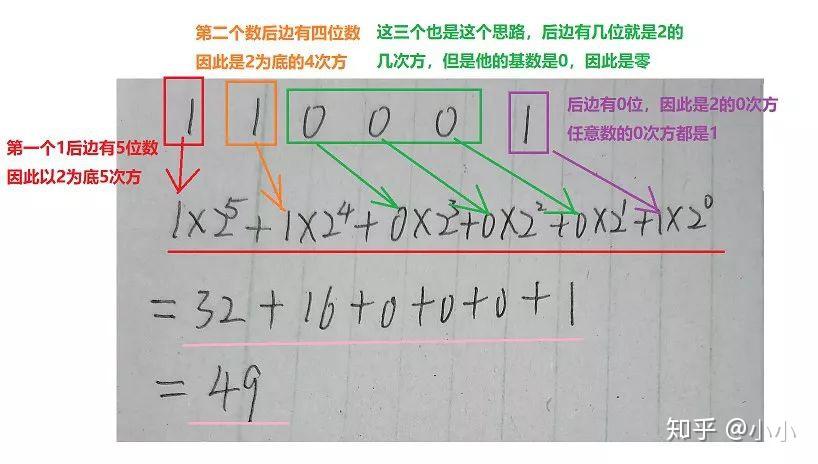 第二个数后边有四位数
因此是2为底的4次方
这三个也是这个思路，后边有几位就是2的
几次方，但是他的基数是0，因此是零
1 1 0 0 0 1
后边有0位，因此是2的0次方
任意数的0次方都是1
第一个1后边有5位数
因此以2为底5次方
1×2⁵+1×2⁴+0×2³+0×2²+0×2¹+1×2⁰
=32+16+0+0+0+1
=49
知乎 @小小